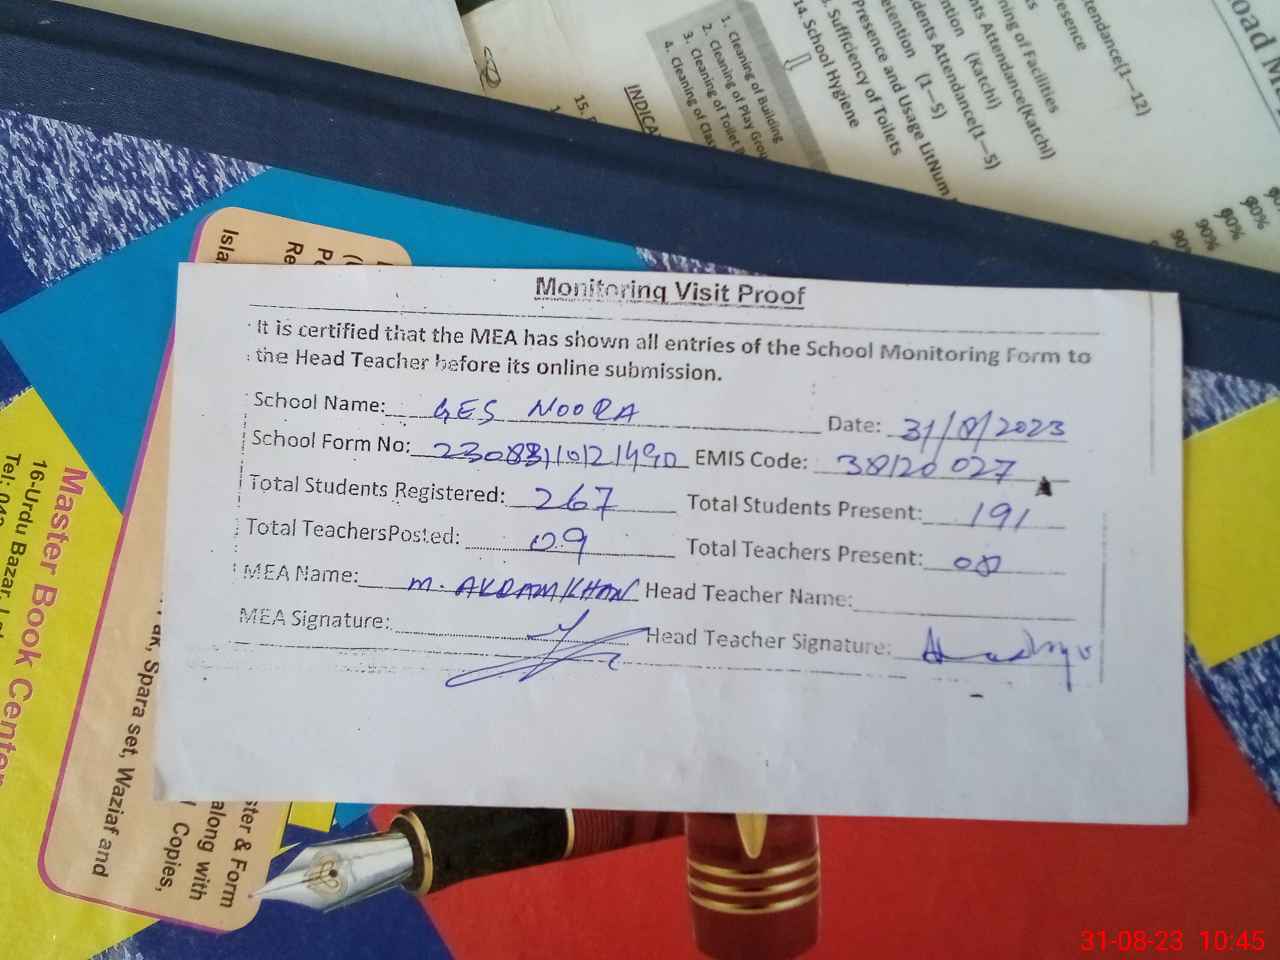 Load M
tendance(1—12)
resence
ning of Facilities
ts Attendance(Katchi)
ntion (Katchi)
dents Attendance(1—5)
etention (1—5)
Presence and Usage LitNum
. Sufficiency of Toilets
14. School Hygiene
1. Cleaning of Building
2. Cleaning of Play Grou
3. Cleaning of Toilet
4. Cleaning of Clas
15.
INDICA
90%
90%
90%
90%
Monitoring Visit Proof
It is certified that the MEA has shown all entries of the School Monitoring Form to
the Head Teacher before its online submission.
School Name: GES NOORA Date: 31/8/2023
School Form No: EMIS Code: 38120027
Total Students Registered: 267 Total Students Present: 191
Total TeachersPosted: 09 Total Teachers Present: 08
MEA Name: M. AKRAM KHAN Head Teacher Name:
MEA Signature: Head Teacher Signature:
Master Book Center
16-Urdu Bazar,
Tel: 042
Isla
Re
, Spara set, Waziaf and
Copies,
along with
ster & Form
31-08-23 10:45